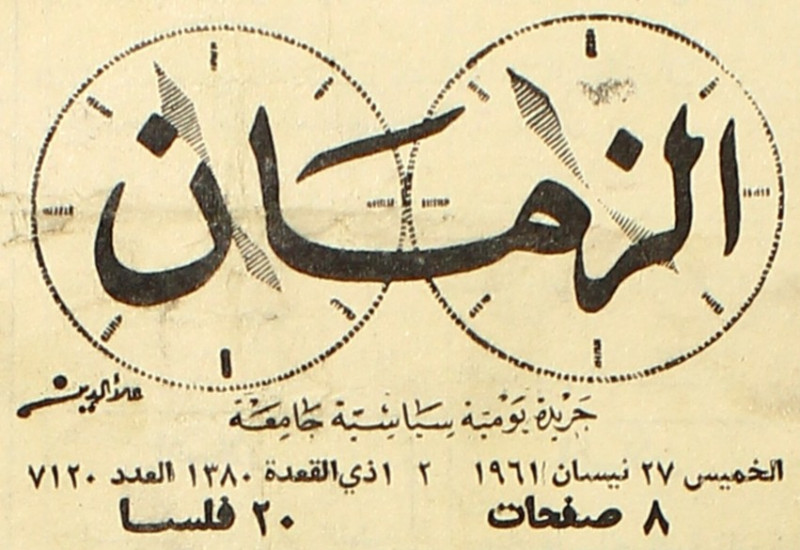 الزمان
علاء الدين
جريدة يومية سياسية جامعة
الخميس ٢٧ نيسان ١٩٦١ ١٢ ذي القعدة ١٣٨٠ العدد ٧١٢٠
٨ صفحات ٢٠ فلسا